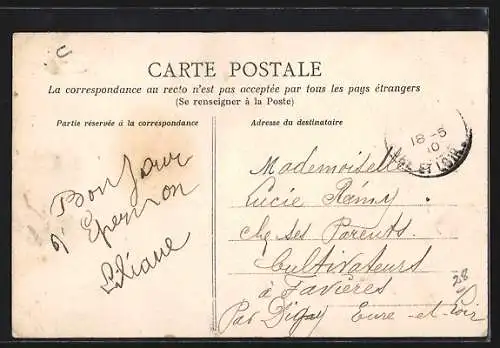 CARTE POSTALE
La correspondance au recto n'est pas acceptée par tous les pays étrangers
(Se renseigner à la Poste)
Partie réservée à la correspondance
Adresse du destinataire
18-5
10
ET LOIR
Bonjour
d'Epernon
Liliane
Mademoiselle
Lucie Rémy
chez ses Parents
Cultivateurs
à Favières
Par Digny Eure-et-Loir
28